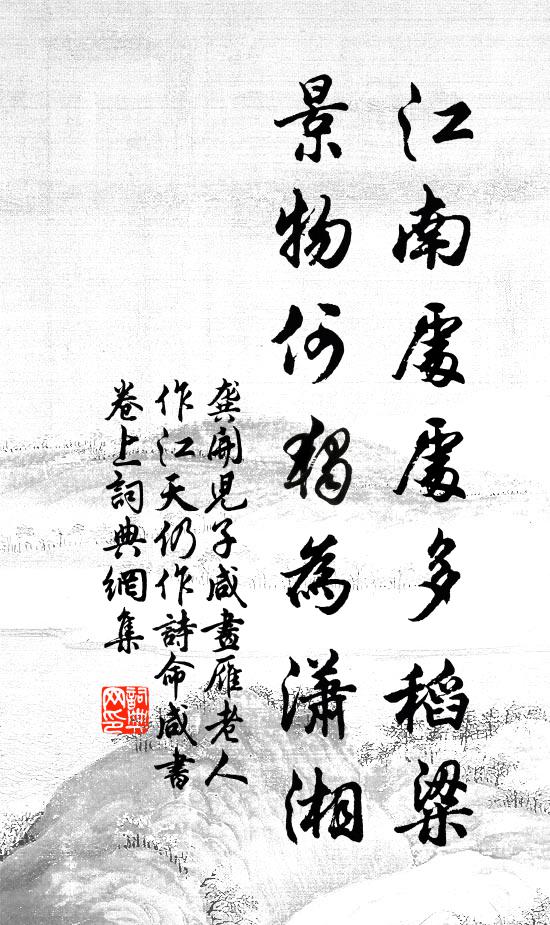 江南處處多稻粱
景物何獨為瀟湘
龔開兒子咸畫雁老人
作江天仍作詩命咸書
卷上詞典網集
詞典网印